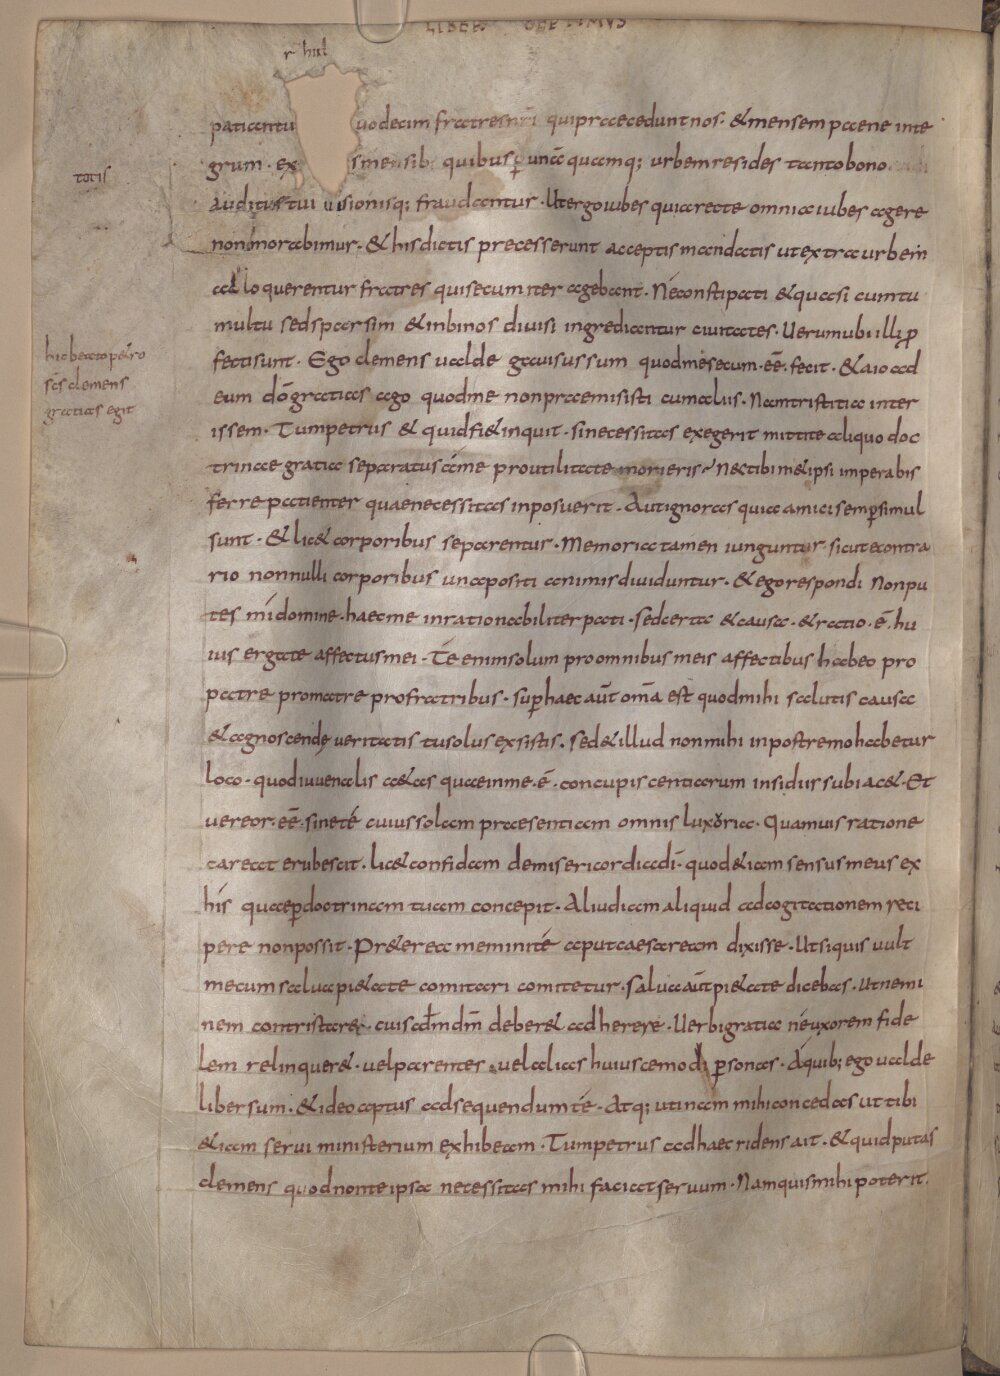 LIBER SEPTIMUS
patiantu uodecim fratres nri qui praecedunt nos · & mensem paene inte
grum · ex smensib; quibus p unaquamq; urbem resides tanto bono
totis
auditus tui uisionisq; fraudantur · Ut ergo iubes quia recte omnia iubes agere
non morabimur · & his dictis precesserunt acceptis mandatis ut extra urbem
ad loquerentur fratres qui secum iter agebant · Ne constipati & quasi cum tu
multu sed sparsim & in binos diuisi ingrediantur ciuitates · Uerum ubi illi p
hic beato petro
scs clemens
gratias egit
fecti sunt · Ego clemens ualde gauisus sum quod me secum · ee · fecit · & aio ad
eum do gratias ago quod me non praemisisti cum alus · Nam tristitia inter
issem · Tum petrus & quid fi& inquit · si necessitas exegerit mitti te aliquo doc
trinae gratia separatus a me pro utilitate morieris · Nec tibi m& ipsi imperabis
ferre patienter quae necessitas inposuerit · Aut ignoras quia amici semp simul
sunt · & lic& corporibus separentur · Memoria tamen iunguntur sicut e contra
rio nonnulli corporibus una positi animis diuiduntur · & ego respondi Non pu
tes mi domine · haec me inrationabiliter pati · sed certa & causa · & ratio · e · hu
ius erga te affectus mei · Te enim solum pro omnibus meis affectibus habeo pro
patre pro matre pro fratribus · sup haec aut oma est quod mihi salutis causa
& agnoscendę ueritatis tu solus exsistis · sed & illud non mihi in postremo habetur
loco · quod iuuenalis a&as quae in me · e · concupiscentiarum insidiis subiac& · Et
uereor · ee · sine te cuius solam praesentiam omnis luxoria · Quamuis ratione
careat erubescit · lic& confidam de misericordia di · quod &iam sensus meus ex
his quae p doctrinam tuam concepit · Aliud iam aliquid ad cogitationem reci
pere non possit · Pr&erea memini te aput caesaream dixisse · Ut si quis uult
mecum salua pi&ate comitari comitetur · salua aut pi&ate dicebas · ut nemi
nem contristare · cui scdm dm deber& adherere · Uerbi gratia ne uxorem fide
lem relinquer& · uel parentes · uel alias huiuscemodi psonas · A quib; ego ualde
liber sum · & ideo aptus ad sequendum te · Atq; utinam mihi concedas ut tibi
&iam serui ministerium exhibeam · Tum petrus ad haec ridens ait · & quid putas
clemens quod non te ipsa necessitas mihi faciat seruum · Nam quis mihi poterit ·